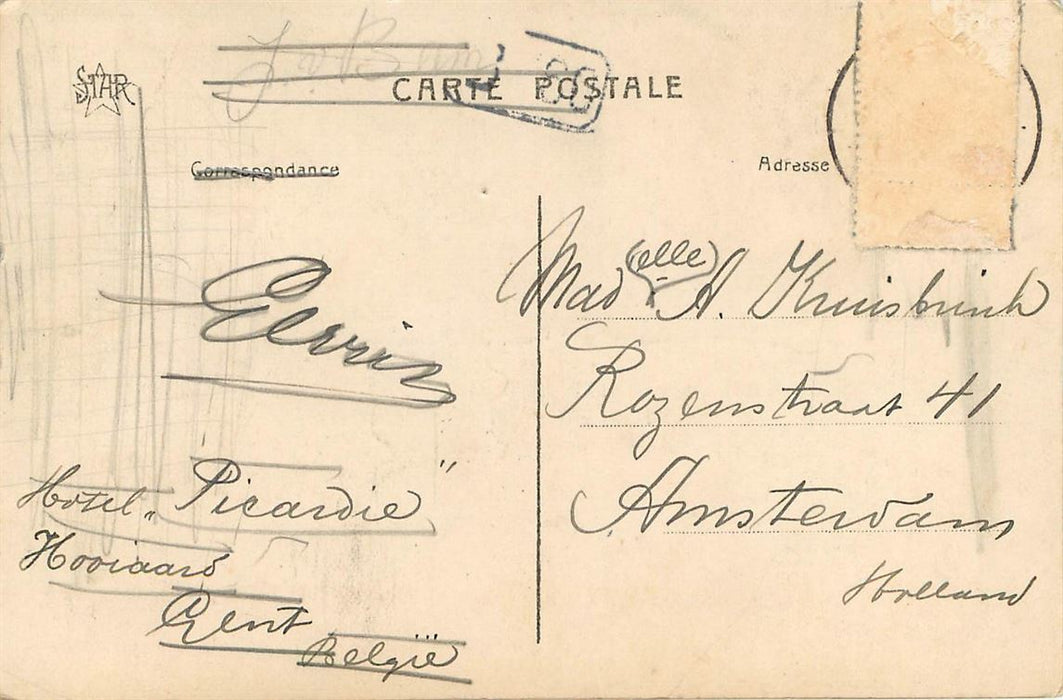 STAR
CARTE POSTALE
Correspondance
Adresse
Edwin
Hotel „Picardie"
Hooiaard
Gent
België
Mad(elle) A. Kruisbrink
Rozenstraat 41
Amsterdam
Holland